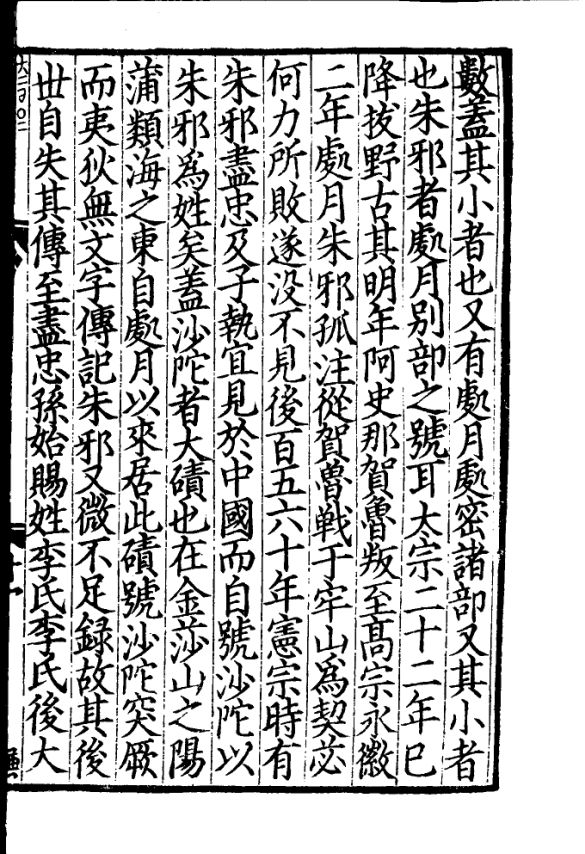 數蓋其小者也又有處月處密諸部又其小者
也朱邪者處月別部之號耳太宗二十二年已
降拔野古其明年阿史那賀魯叛至髙宗永徽
二年處月朱邪孤注從賀魯戦于牢山爲契苾
何力所敗遂没不見後百五六十年憲宗時有
朱邪盡忠及子執宜見於中國而自號沙陀以
朱邪爲姓矣蓋沙陀者大磧也在金莎山之陽
蒲類海之東自處月以來居此磧號沙陀突厥
而夷狄無文字傳記朱邪又微不足録故其後
丗自失其傳至盡忠孫始賜姓李氏李氏後大